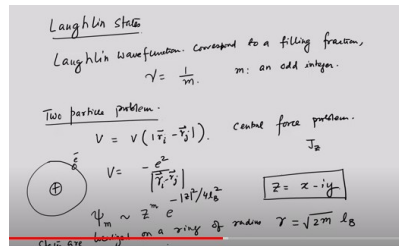 Laughlin States
Laughlin wavefunction. Correspond to a filling fraction,
ν = 1/m. m: an odd integer.
Two particle problem.
V = V(|r⃗i - r⃗j|). Central force problem.
Jz
V = -e²/|r⃗i - r⃗j|
z = x - iy
ψm ~ z^m e^(-|z|²/4lB²)
on a ring of radius r = √2m lB
are